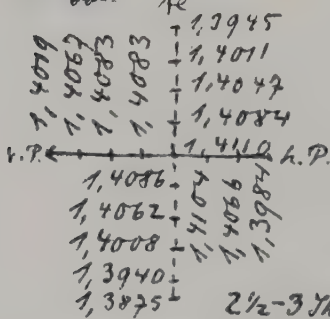 1,3945
1,4011
1,4047
1,4084
1,4110
1,4019
1,4067
1,4083
1,4083
v. P.
h. P.
1,4086
1,4062
1,4008
1,3940
1,3875
1,4104
1,4066
1,3984
2½-3